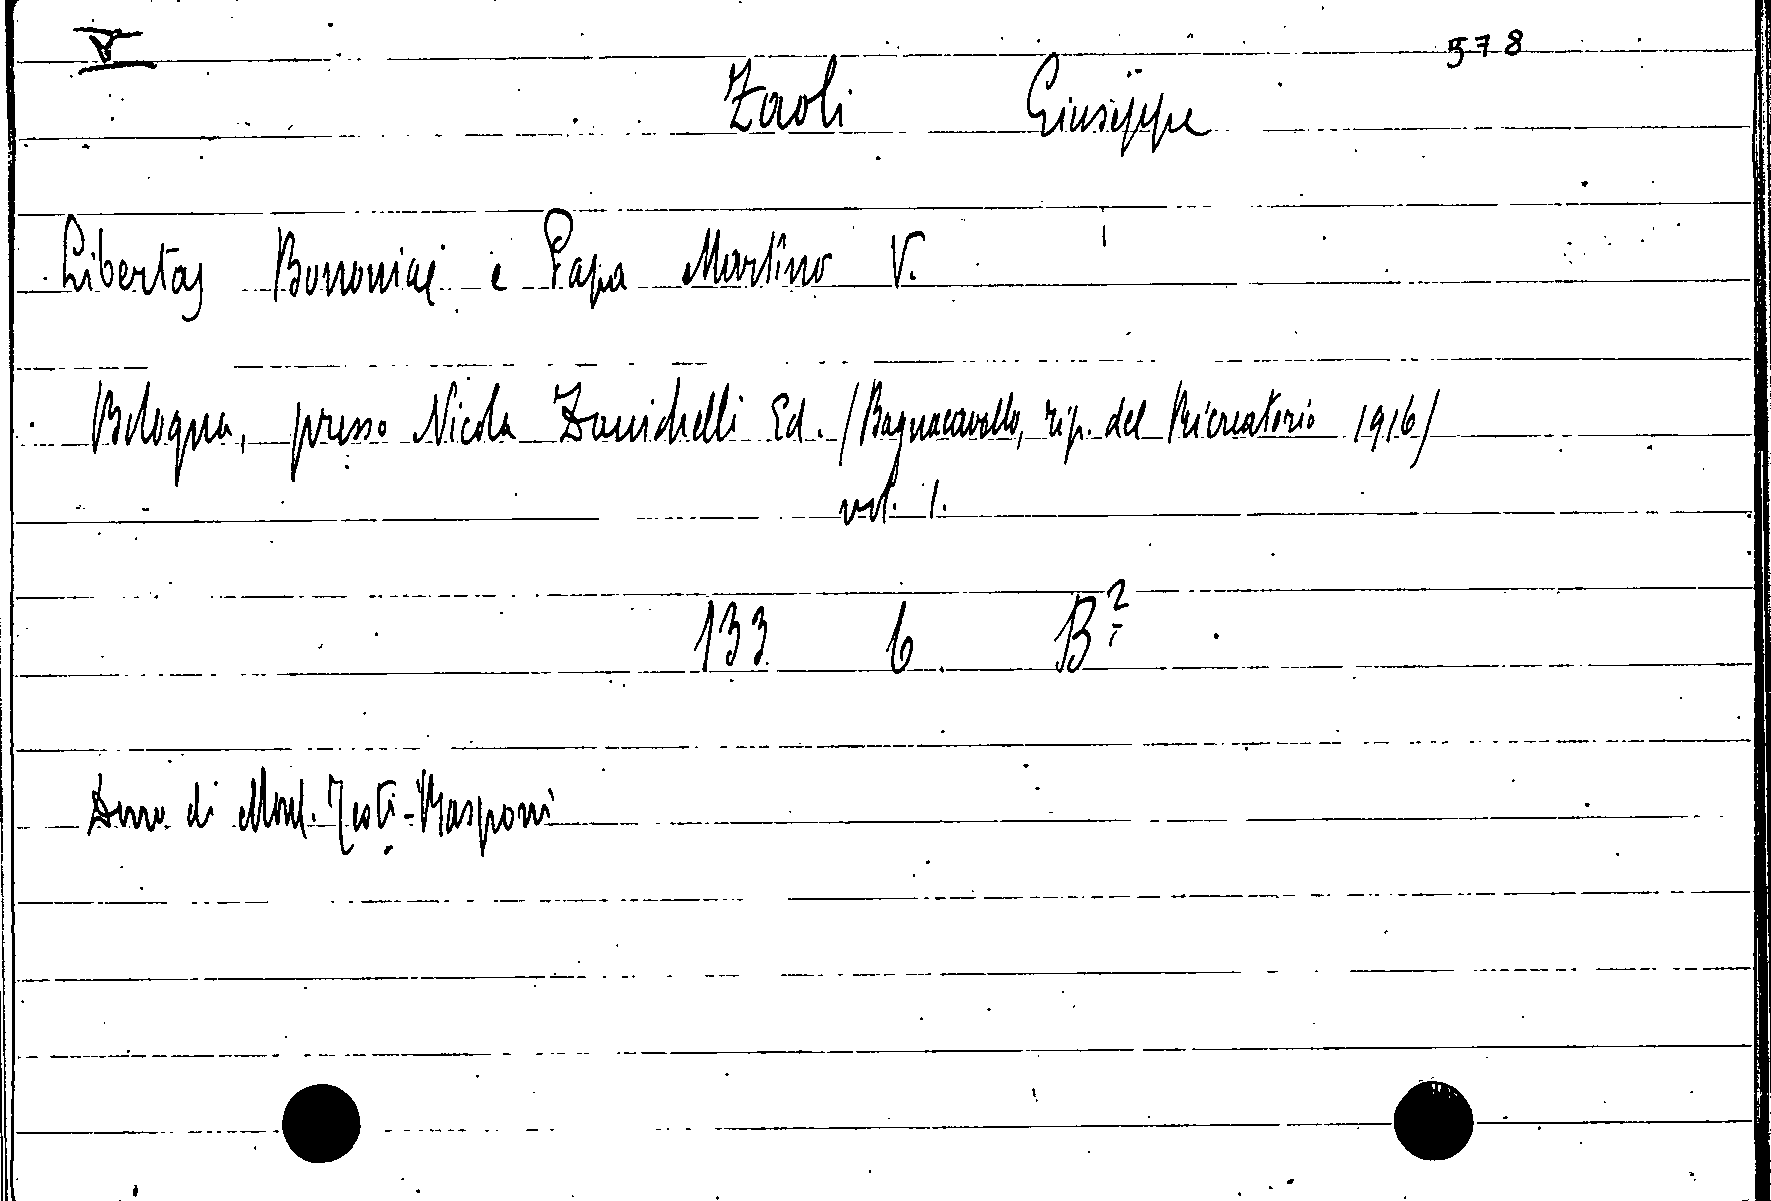 V 578
Zaoli Giuseppe
Libertas Bononiae e Papa Martino V.
Bologna, presso Nicola Zanichelli Ed. /Bagnacavallo, tip. del Ricreatorio 1916/
vol. 1.
133 6 B²
Dono di Mons. Testi-Rasponi